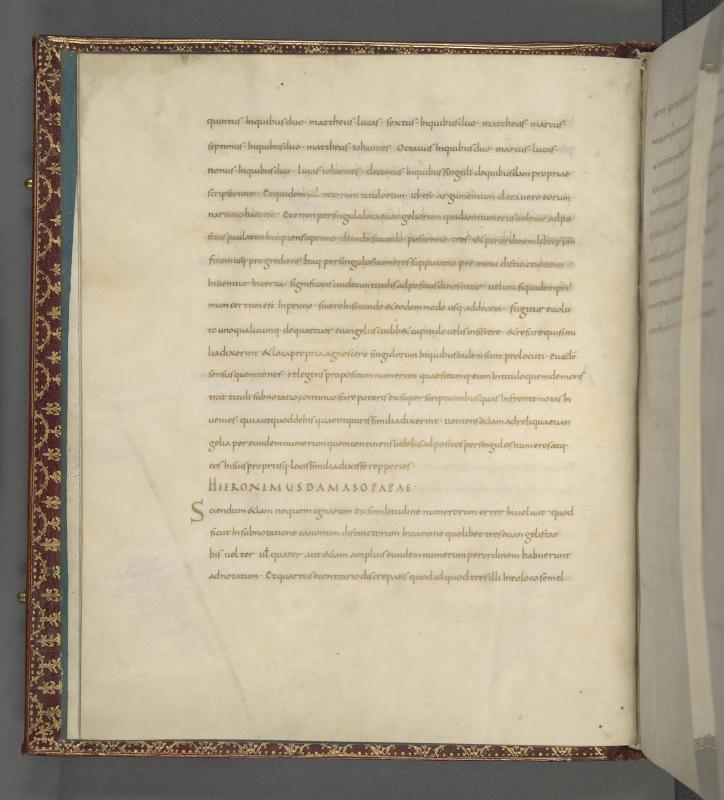 quintus · Inquibus duo · mattheus · lucas · sextus · Inquibus duo · mattheus · marcus ·
septimus · Inquibus duo · mattheus · iohannes · Octauus Inquibus duo · marcus · lucas ·
nonus · Inquibus duo · lucas · iohannes · decimus · Inquibus singuli dequibusdam propriae
scripserunt · Et quidem titulorum · id est argumentum clara uero eorum
narratio haec est · Etenim per singula loca euangeliorum quidam numerus adpo
situs paulatim Incipiens a primo · deinde secundo postremo tres · & per ordinem librorum
finem usq; progrediens · Itaq; per singulos numeros supputatio per minu distinctionem
Inuenitur Inserta · significans cui decim titulis adpositus dinoscitur · ueluti siquidem pri
mum certum est In primo · si uero In secundo & eodem modo usq; ad decem · Si igitur euolu
to uno qualicumq; de quattuor euangeliis cuilib& capitulo uelis insistere · & rescire qui simi
lia dixerint & loca propria agnoscere singulorum In quibus eadem sunt prolocuti · eiusdē
sensus quem tenes relegens propositum numerum quaesitumq; eum In titulo quem demons
trat tituli subnotatio continuo scire poteris ex superscriptionibus quas In fronte notas In
uenies · qui aut quod debis quae inquiris similia dixerint · ueniens &iam ad reliqua euan
gelia per eundem numerum quem contin& uidebis adpositos per singulos numeros atq;
eos In suis propriisq; locis similia dixisse repperies ·
HIERONIMUS DAMASO PAPAE ·
Sciendum &iam ne quem ignarum ex similitudine numerorum error Inuoluat · quod
sicut In subnotatione canonum distinctorum In canone quolib& tres euangelistae
bis uel ter ul quater aut &iam amplius eundem numerum per ordinem habuerint
adnotatum · Et quartus e contrario discrepans quod id quod tres illi In eo loco semel